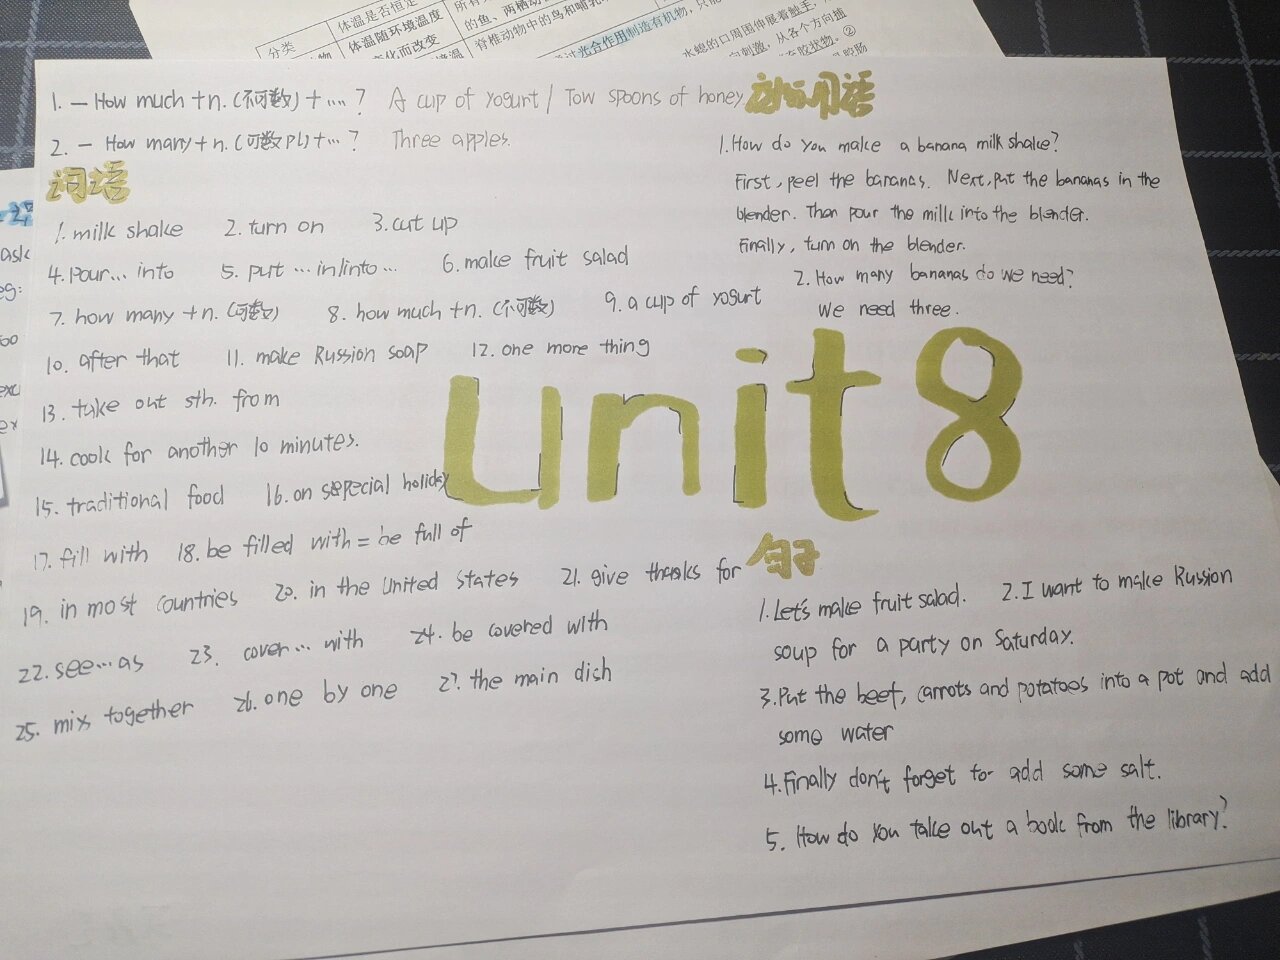 分类
体温是否恒定
体温随环境温度
水螅的口周围伸展着触手
1. — How much +n.(不可数)+...? A cup of yogurt / Tow spoons of honey.
2. — How many +n.(可数pl)+...? Three apples.
词语
1. milk shake 2. turn on 3. cut up
4. Pour... into 5. put ... in/into ... 6. make fruit salad
7. how many +n.(可数) 8. how much +n.(不可数) 9. a cup of yogurt
10. after that 11. make Russion soap 12. one more thing
13. take out sth. from
14. cook for another 10 minutes.
15. traditional food 16. on sepecial holiday
17. fill with 18. be filled with = be full of
19. in most countries 20. in the United States 21. give thanks for
22. see...as 23. cover... with 24. be covered with
25. mix together 26. one by one 27. the main dish
unit 8
1. How do you make a banana milk shake?
First, peel the bananas. Next, put the bananas in the
blender. Then pour the milk into the blender.
Finally, turn on the blender.
2. How many bananas do we need?
We need three.
句子
1. Let's make fruit salad. 2. I want to make Russion
soup for a party on Saturday.
3. Put the beef, carrots and potatoes into a pot and add
some water
4. Finally don't forget to add some salt.
5. How do you take out a book from the library?